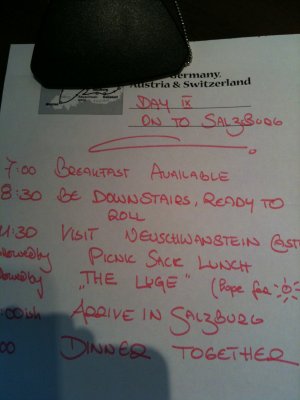 Germany,
Austria & Switzerland
DAY IX
ON TO SALZBURG
7:00 BREAKFAST AVAILABLE
8:30 BE DOWNSTAIRS, READY TO
ROLL
11:30 VISIT NEUSCHWANSTEIN CASTL
followed by PICNIC SACK LUNCH
followed by „THE LUGE" (Hope for
:00ish ARRIVE IN SALZBURG
00 DINNER TOGETHER